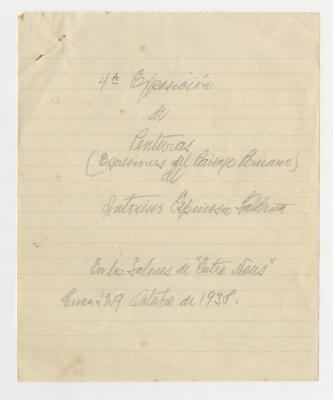 4ta Exposición
de
Penturas
(Expresiones del Paisaje Peruano)
del
Antonino Espinosa Saldaña
En los Salones de "Entre Nous"
29 Octubre de 1938.